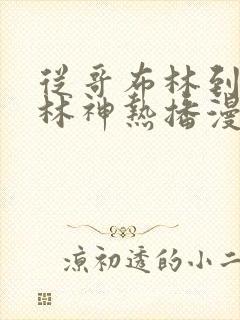 從哥布林到
林神熱播漫
涼初透的小二